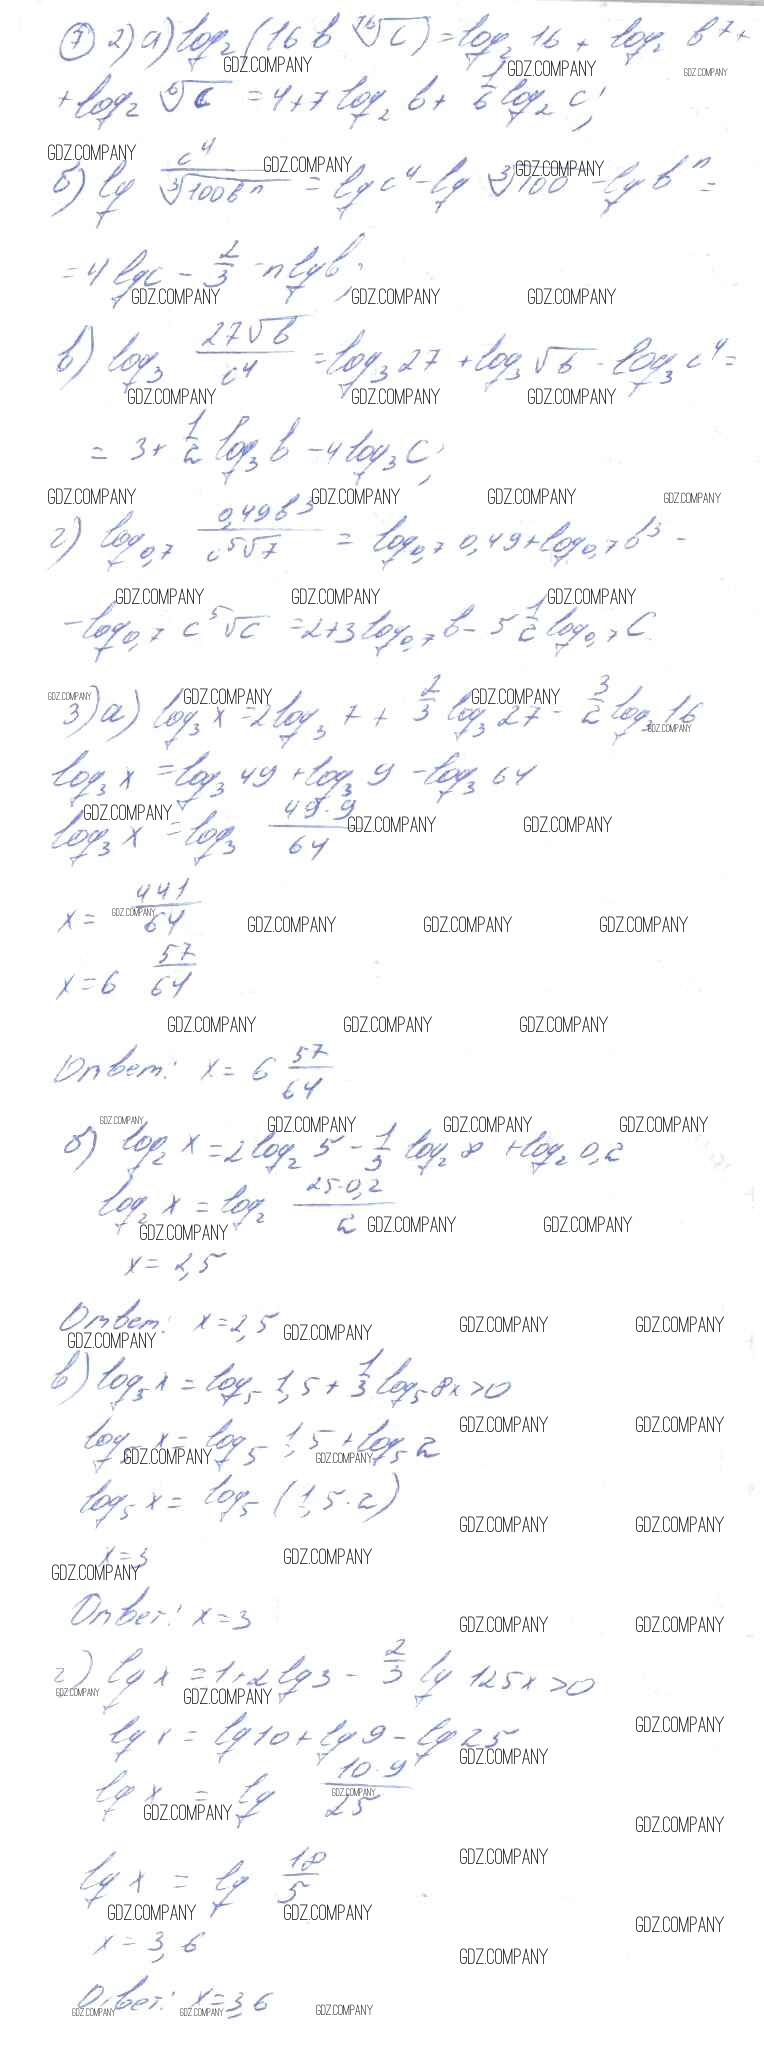 ⑦ 2) а) log₂ (16 b ⁷⁶√c) = log₂ 16 + log₂ b⁷ +
GDZ.COMPANY GDZ.COMPANY GDZ.COMPANY
+ log₂ ⁶√c = 4 + 7 log₂ b + 1/6 log₂ c;
GDZ.COMPANY GDZ.COMPANY GDZ.COMPANY
б) lg c⁴/∛(100bⁿ) = lg c⁴ - lg ∛100 - lg bⁿ =
= 4 lg c - 2/3 - n lg b;
GDZ.COMPANY GDZ.COMPANY GDZ.COMPANY
в) log₃ 27√b/c⁴ = log₃ 27 + log₃ √b - log₃ c⁴ =
GDZ.COMPANY GDZ.COMPANY GDZ.COMPANY
= 3 + 1/2 log₃ b - 4 log₃ c;
GDZ.COMPANY GDZ.COMPANY GDZ.COMPANY GDZ.COMPANY
г) log₀,₇ 0,49b³/c⁵√7 = log₀,₇ 0,49 + log₀,₇ b³ -
GDZ.COMPANY GDZ.COMPANY GDZ.COMPANY
- log₀,₇ c⁵√c = 2 + 3 log₀,₇ b - 5 1/2 log₀,₇ c
GDZ.COMPANY GDZ.COMPANY GDZ.COMPANY
3) а) log₃ x = 2 log₃ 7 + 2/3 log₃ 27 - 3/2 log₃ 16
GDZ.COMPANY
log₃ x = log₃ 49 + log₃ 9 - log₃ 64
GDZ.COMPANY GDZ.COMPANY GDZ.COMPANY
log₃ x = log₃ 49·9/64
x = 441/64
GDZ.COMPANY GDZ.COMPANY GDZ.COMPANY GDZ.COMPANY
x = 6 57/64
GDZ.COMPANY GDZ.COMPANY GDZ.COMPANY
Ответ: x = 6 57/64
GDZ.COMPANY GDZ.COMPANY GDZ.COMPANY GDZ.COMPANY
б) log₂ x = 2 log₂ 5 - 1/3 log₂ 8 + log₂ 0,2
log₂ x = log₂ 25·0,2/2
GDZ.COMPANY GDZ.COMPANY GDZ.COMPANY
x = 2,5
Ответ: x = 2,5
GDZ.COMPANY GDZ.COMPANY GDZ.COMPANY GDZ.COMPANY
в) log₅ x = log₅ 1,5 + 1/3 log₅ 8 x > 0
GDZ.COMPANY GDZ.COMPANY
log₅ x = log₅ 1,5 + log₅ 2
GDZ.COMPANY GDZ.COMPANY
log₅ x = log₅ (1,5·2)
GDZ.COMPANY GDZ.COMPANY
x = 3
GDZ.COMPANY GDZ.COMPANY
Ответ: x = 3
GDZ.COMPANY GDZ.COMPANY
г) lg x = 1 + 2 lg 3 - 2/3 lg 125 x > 0
GDZ.COMPANY GDZ.COMPANY GDZ.COMPANY
lg x = lg 10 + lg 9 - lg 25
GDZ.COMPANY
lg x = lg 10·9/25
GDZ.COMPANY GDZ.COMPANY GDZ.COMPANY
lg x = lg 18/5
GDZ.COMPANY
GDZ.COMPANY GDZ.COMPANY GDZ.COMPANY
x = 3,6
GDZ.COMPANY
Ответ: x = 3,6
GDZ.COMPANY GDZ.COMPANY GDZ.COMPANY